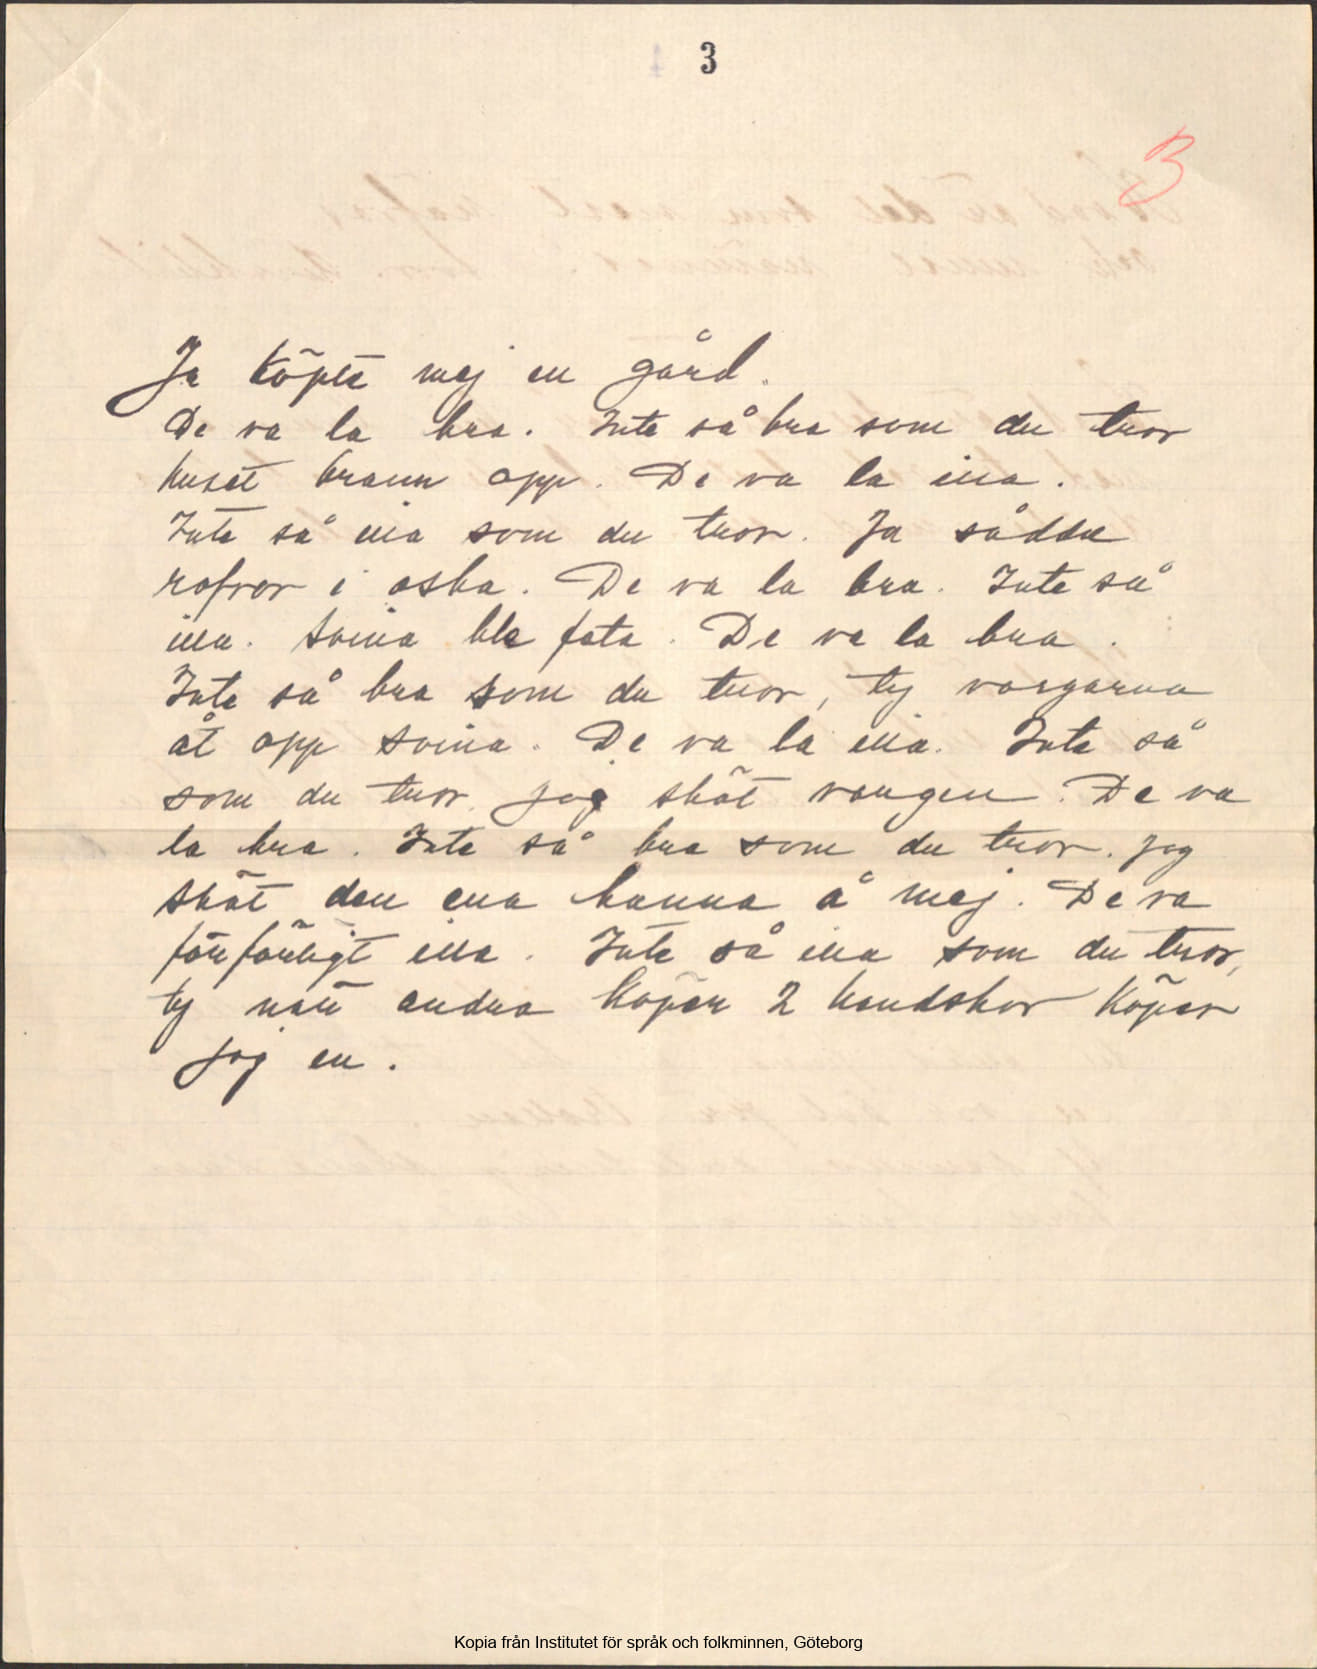 3
3
Ja köpte mej en gård.
De va la bra. Inte så bra som du tror
huset brann opp. De va la illa.
Inte så illa som du tror. Ja sådde
rofvor i aska. De va la bra. Inte så
illa. Svina ble feta. De va la bra.
Inte så bra som du tror, ty vargarna
åt opp svina. De va la illa. Inte så
som du tror, jag sköt vargen. De va
la bra. Inte så bra som du tror. jag
sköt den ena hanna å mej. De va
förfärligt illa. Inte så illa som du tror,
ty när andra köper 2 handskar köper
jag en.
Kopia från Institutet för språk och folkminnen, Göteborg